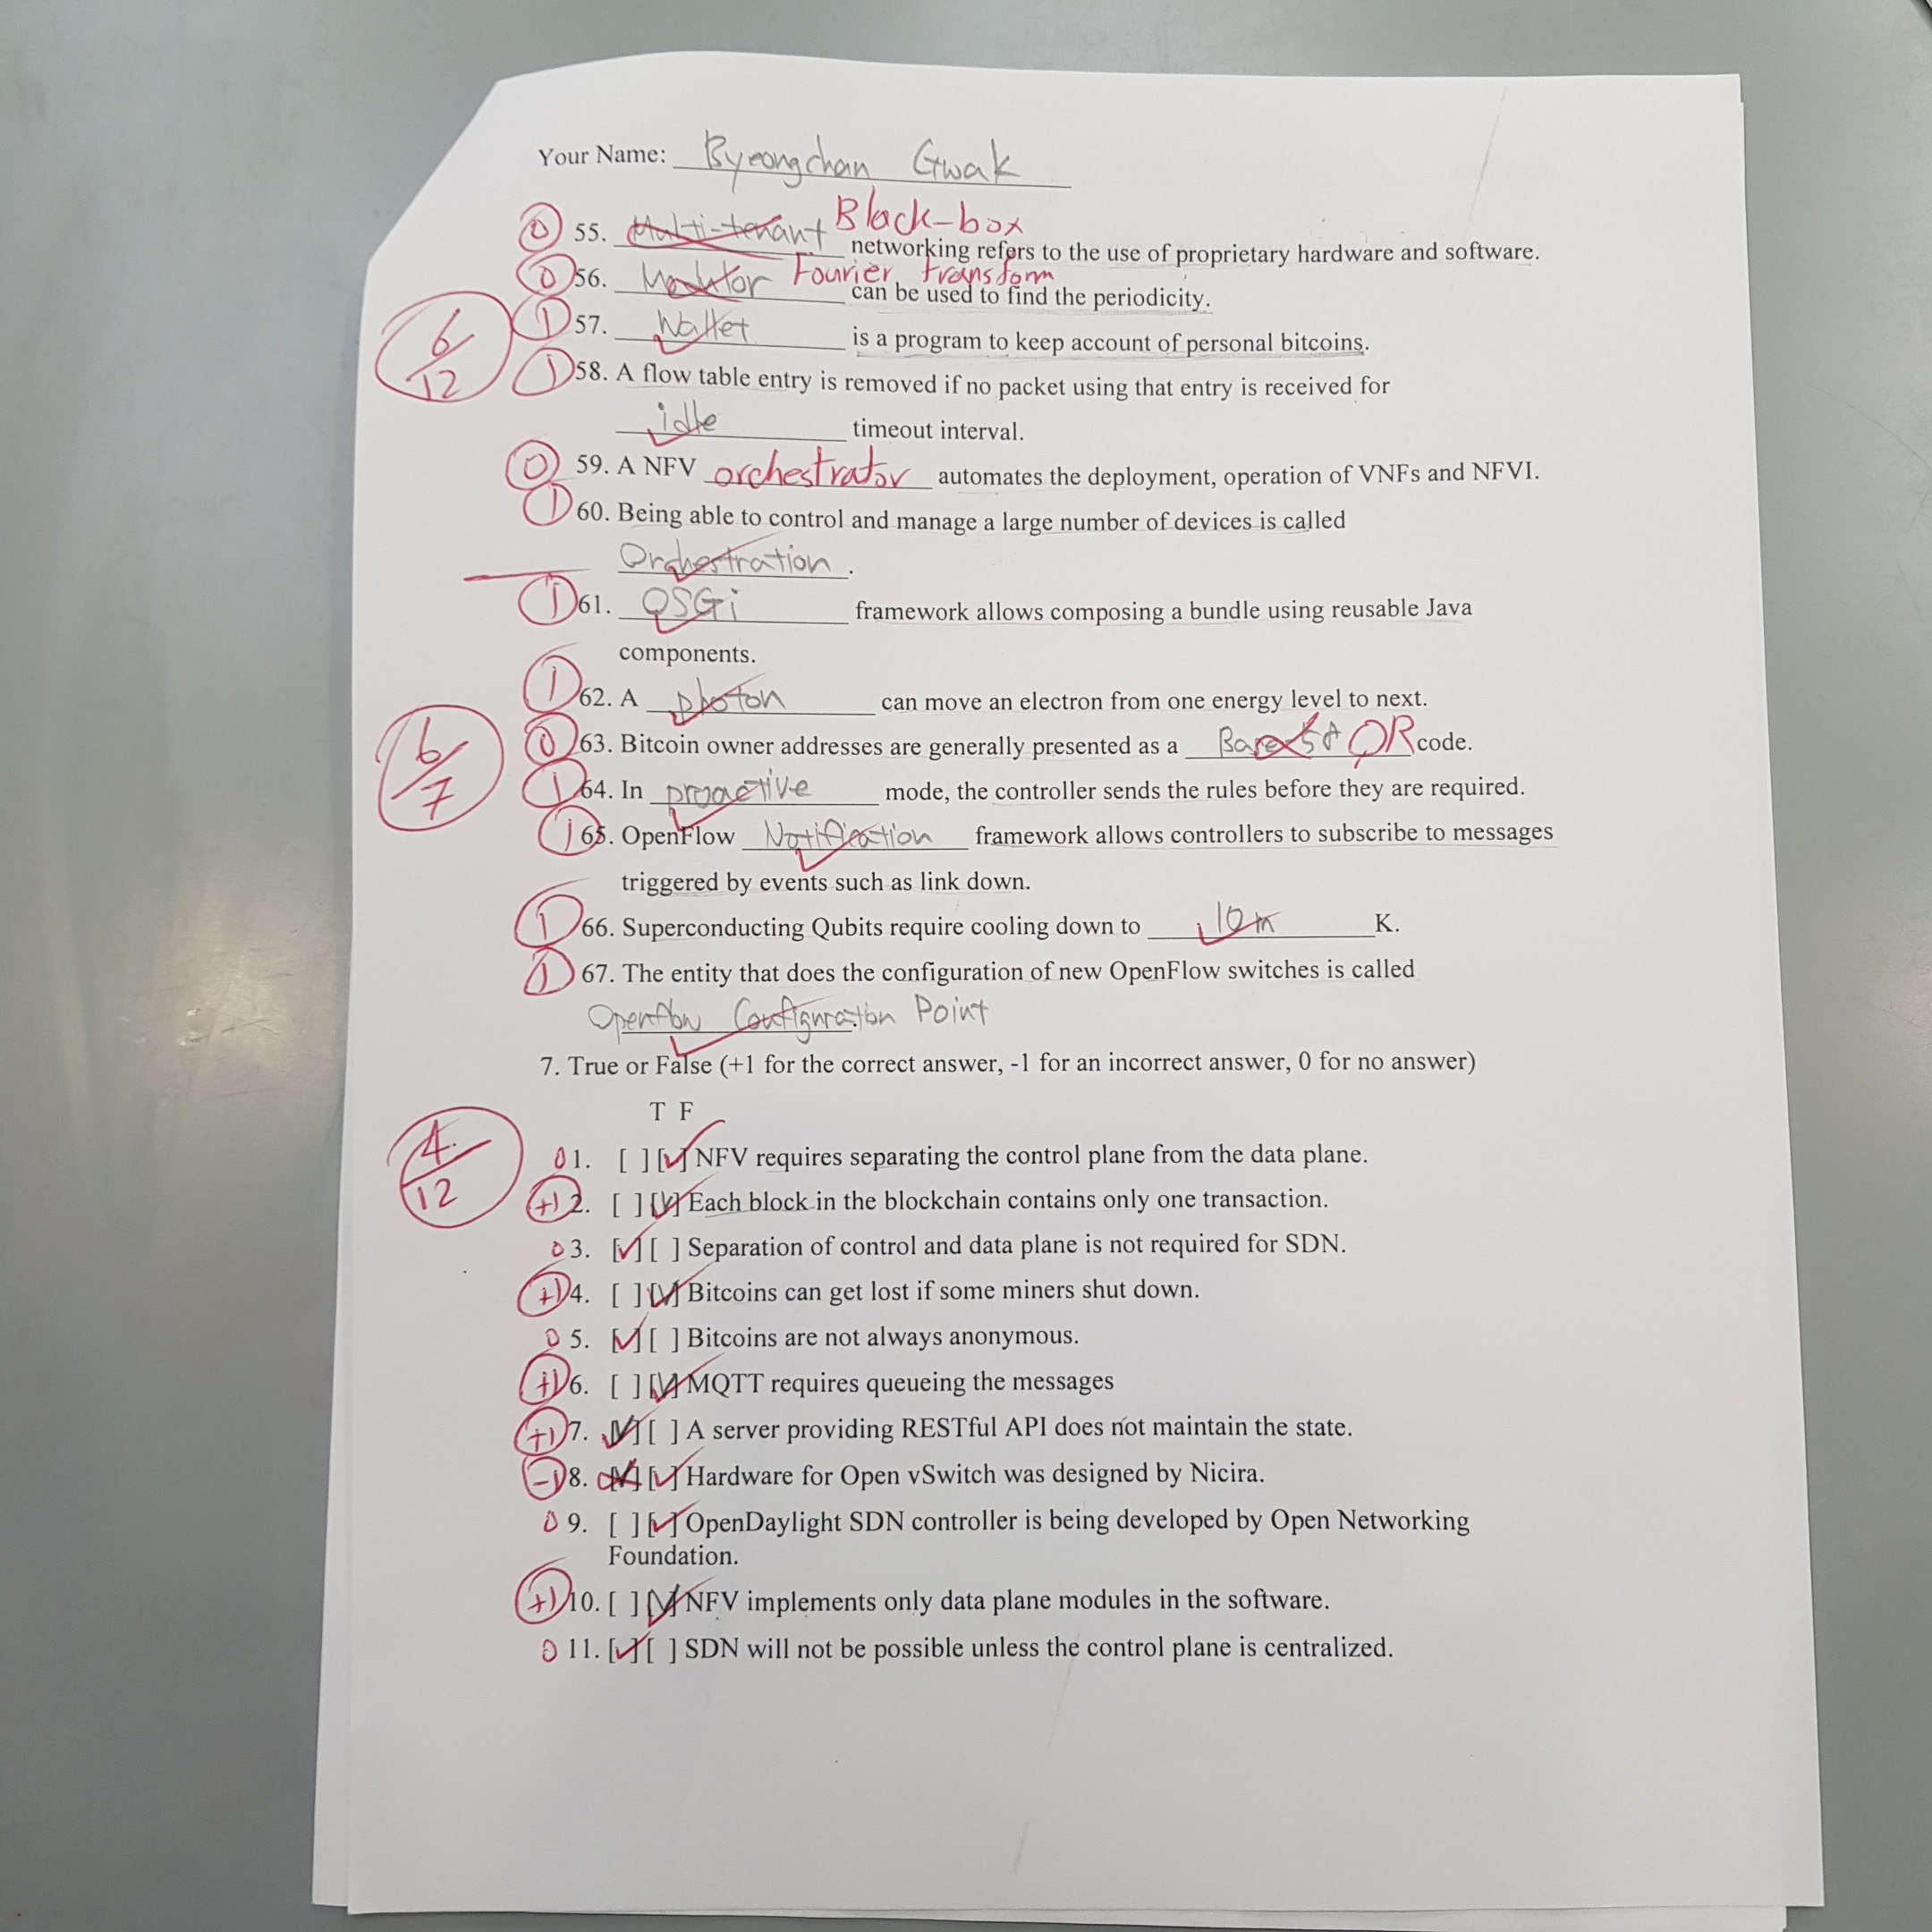 Your Name: Byeongchan Gwak
0 55. Multi-tenant Black-box networking refers to the use of proprietary hardware and software.
0 56. Fourier transform can be used to find the periodicity.
1 57. Wallet is a program to keep account of personal bitcoins.
6/12
1 58. A flow table entry is removed if no packet using that entry is received for
idle timeout interval.
0 59. A NFV orchestrator automates the deployment, operation of VNFs and NFVI.
1 60. Being able to control and manage a large number of devices is called
Orchestration.
1 61. OSGi framework allows composing a bundle using reusable Java
components.
1 62. A photon can move an electron from one energy level to next.
0 63. Bitcoin owner addresses are generally presented as a QR code.
6/7
1 64. In proactive mode, the controller sends the rules before they are required.
1 65. OpenFlow Notification framework allows controllers to subscribe to messages
triggered by events such as link down.
1 66. Superconducting Qubits require cooling down to 10m K.
1 67. The entity that does the configuration of new OpenFlow switches is called
Openflow Configuration Point
7. True or False (+1 for the correct answer, -1 for an incorrect answer, 0 for no answer)
T F
4/12
0 1. [ ] [✓] NFV requires separating the control plane from the data plane.
+1 2. [ ] [✓] Each block in the blockchain contains only one transaction.
0 3. [✓] [ ] Separation of control and data plane is not required for SDN.
+1 4. [ ] [✓] Bitcoins can get lost if some miners shut down.
0 5. [✓] [ ] Bitcoins are not always anonymous.
+1 6. [ ] [✓] MQTT requires queueing the messages
+1 7. [✓] [ ] A server providing RESTful API does not maintain the state.
-1 8. [✓] [✓] Hardware for Open vSwitch was designed by Nicira.
0 9. [ ] [✓] OpenDaylight SDN controller is being developed by Open Networking
Foundation.
+1 10. [ ] [✓] NFV implements only data plane modules in the software.
0 11. [✓] [ ] SDN will not be possible unless the control plane is centralized.